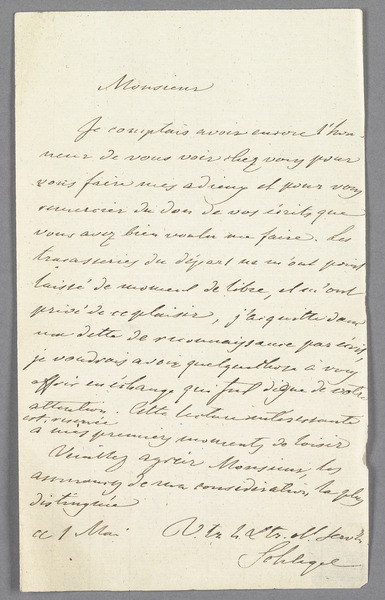 Monsieur
Je comptais avoir encore l'hon-
neur de vous voir chez vous pour
vous faire mes adieux et pour vous
remercier du don de vos écrits que
vous avez bien voulu me faire. Les
tracasseries du départ ne m'ont point
laissé de moment de libre, et m'ont
privé de ce plaisir, j'acquitte donc
ma dette de reconnaissance par écrit
je voudrais avoir quelque chose à vous
offrir en échange qui fut digne de votre
attention. Cette lecture intéressante
est réservée
à mes premiers moments de loisir
Veuillez agréer Monsieur, les
assurances de ma considération la plus
distinguée
ce 1 Mai
V. tr. h. & tr. ob. serv.
Schlegel